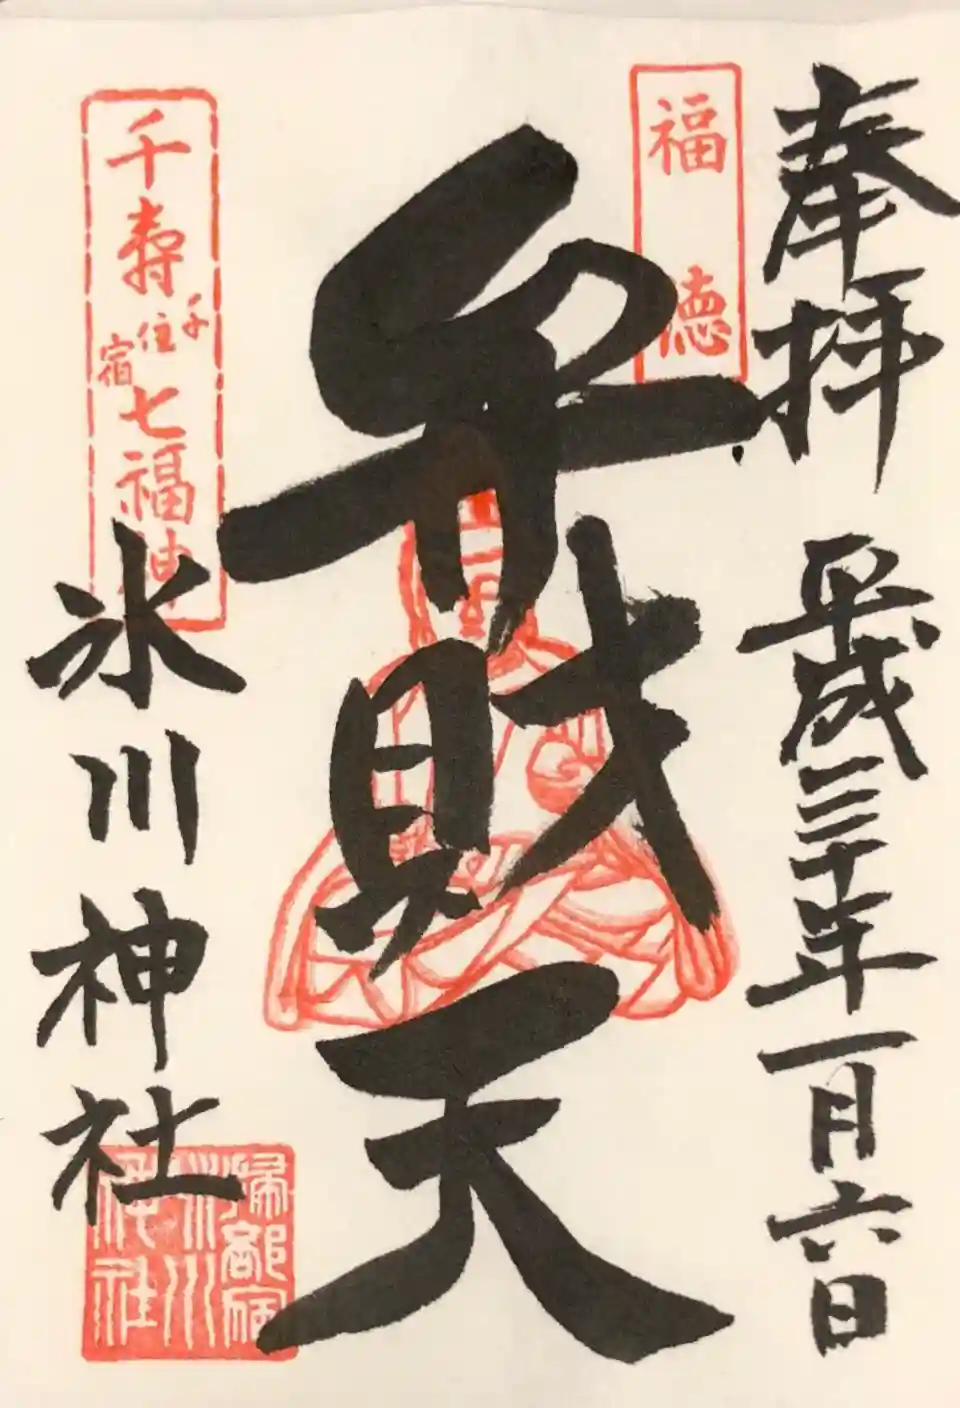 奉拝 平成三十年一月六日
福徳
弁財天
千寿七福神
千住宿
氷川神社
掃部宿
氷川
神社